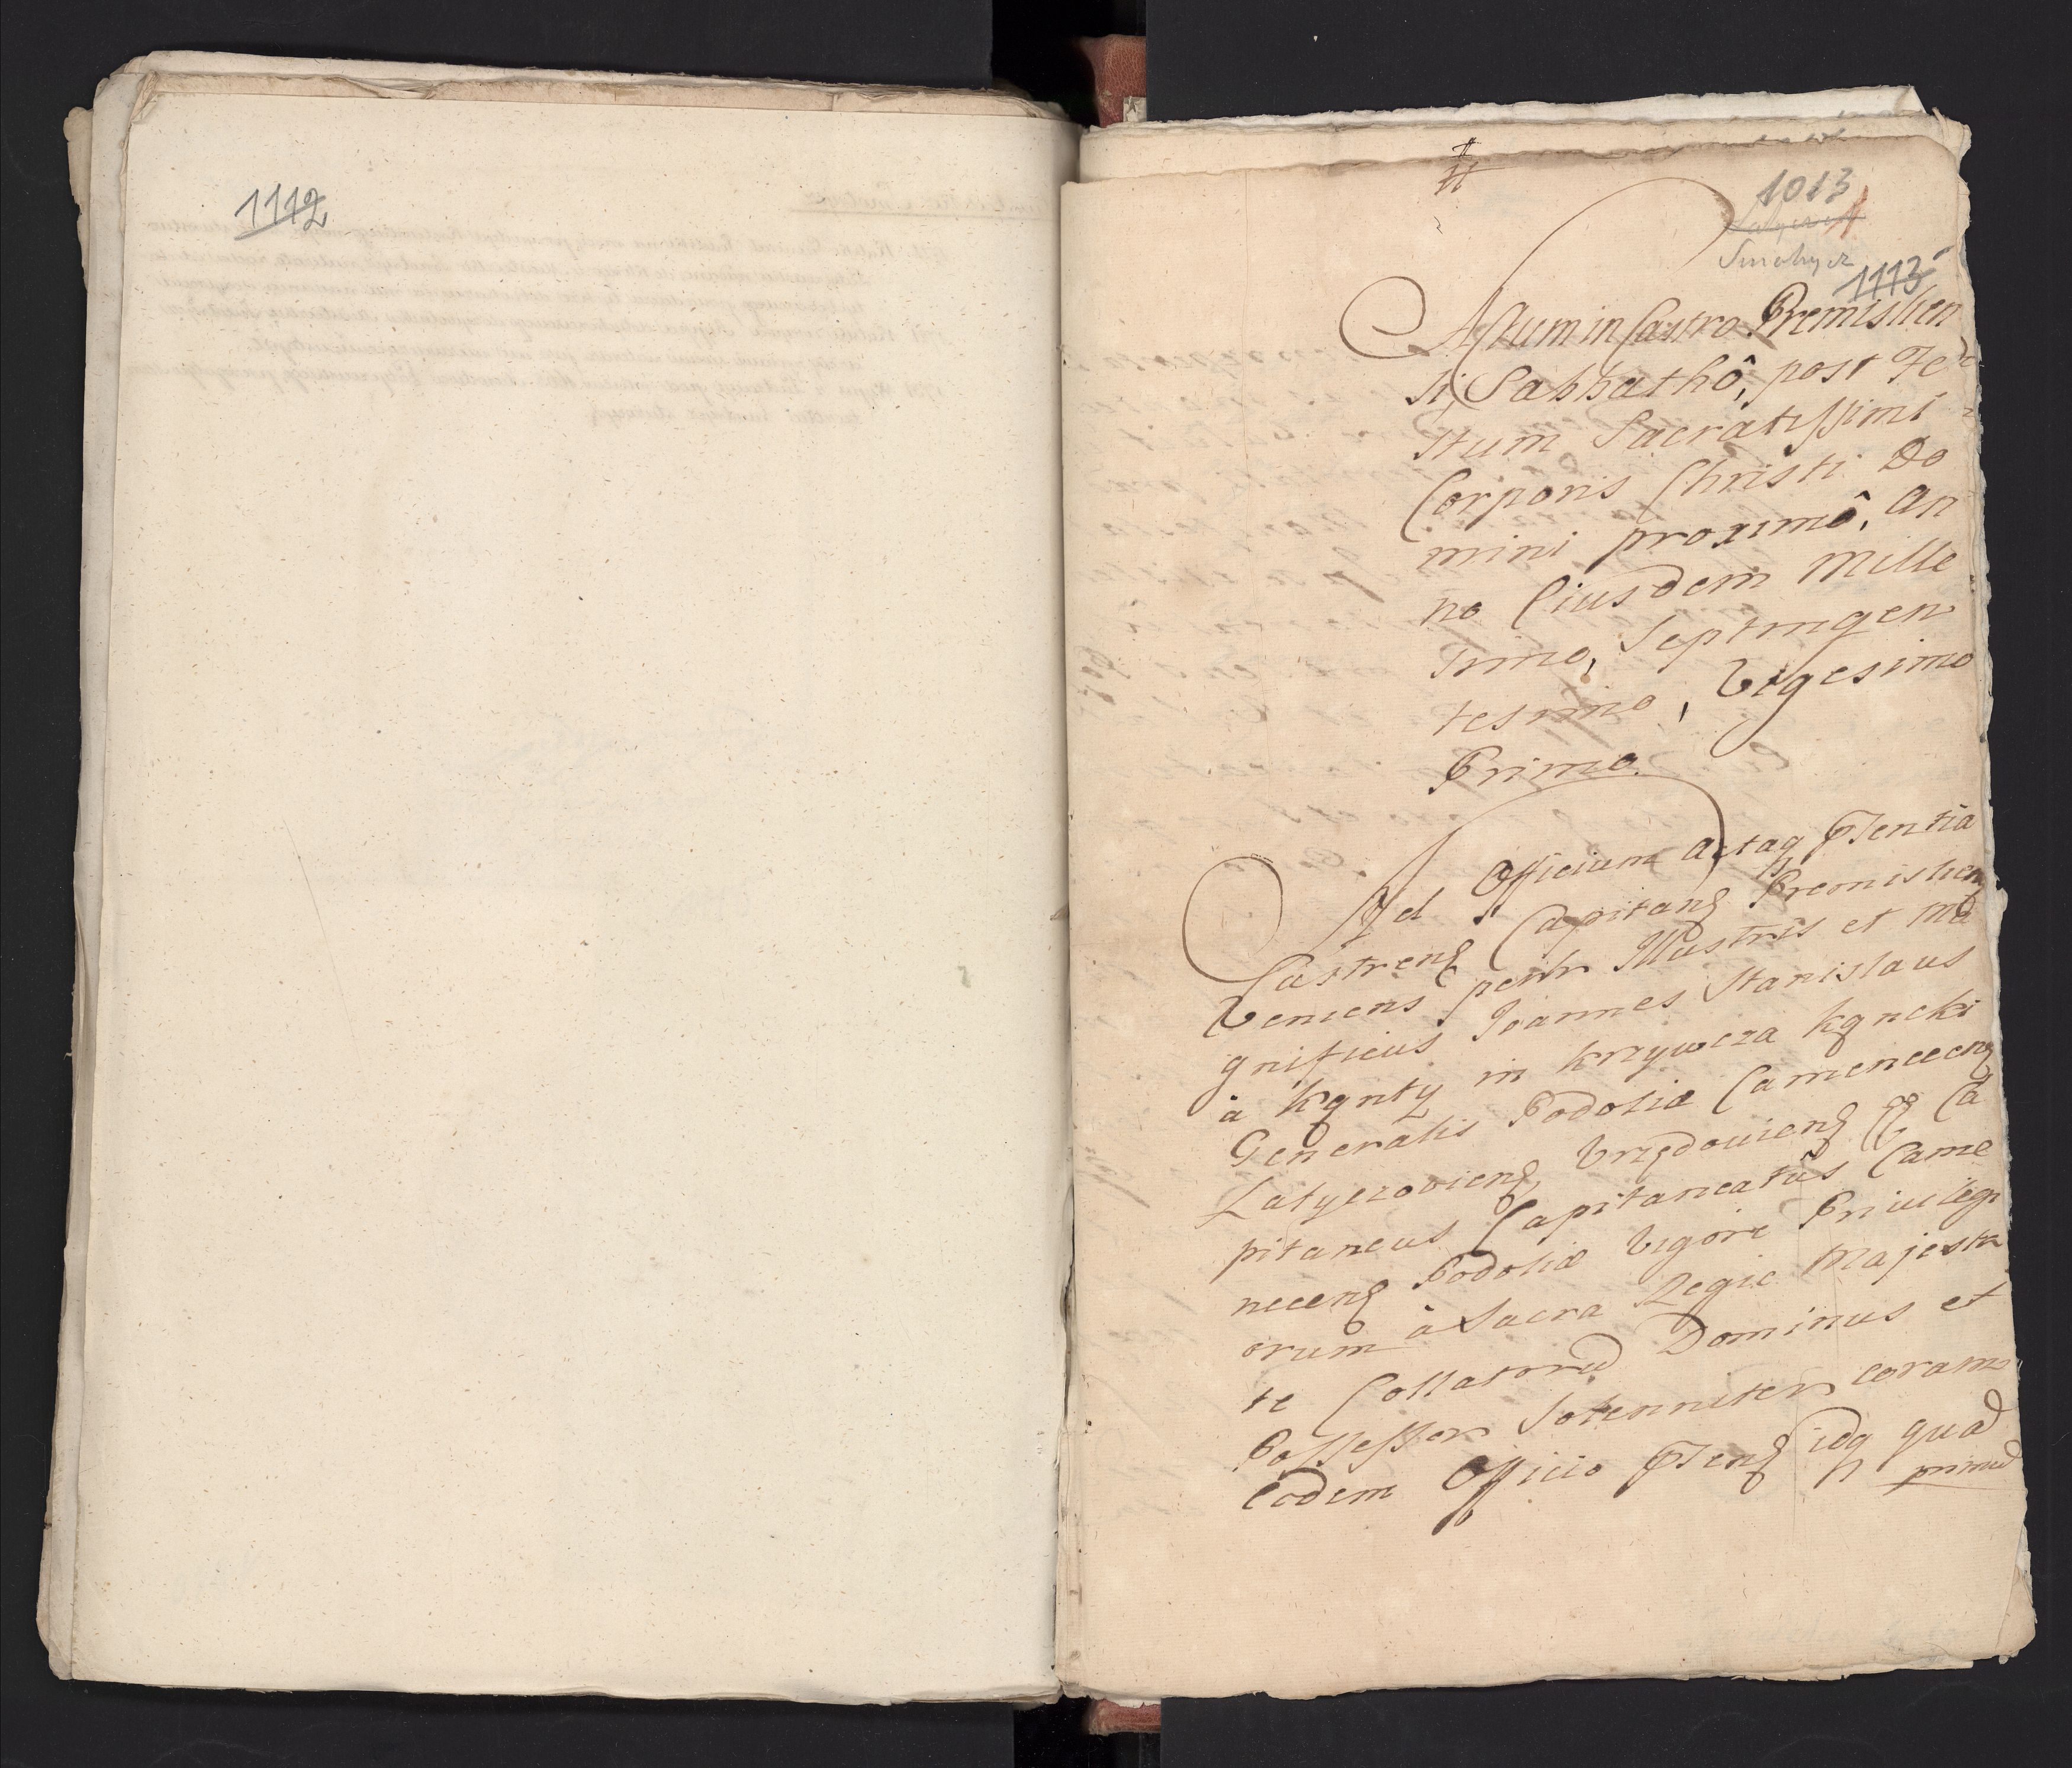 1112
1013
Smotrycz
1113
Actum in Castro Premislien
si, Sabbathô, post Fe
stum Sacratissimi
Corporis Christi Do
mini proximô, An
no Eiusdem Mille
simo, Septingen
tesimo, Vigesimo
Primo.
Ad Officium Actaq pntia
Castrenṣ Capitanẹ Premislien
Veniens psnlr Illustris et Ma
gnificus Joannes Stanislaus
à Kąnty in Krzywcza Kącki
Generalis Podoliæ Camenecen
Latyczovien Vrzędovien &c Ca
pitaneus Capitaneatûs Came
necen Podoliæ Vigore Privilegi
orum à Sacra Regia Majesta
te Collatorũ Dominus et
Possessor Solenniter coram
Eodem Officio pnti idq quad
primũ